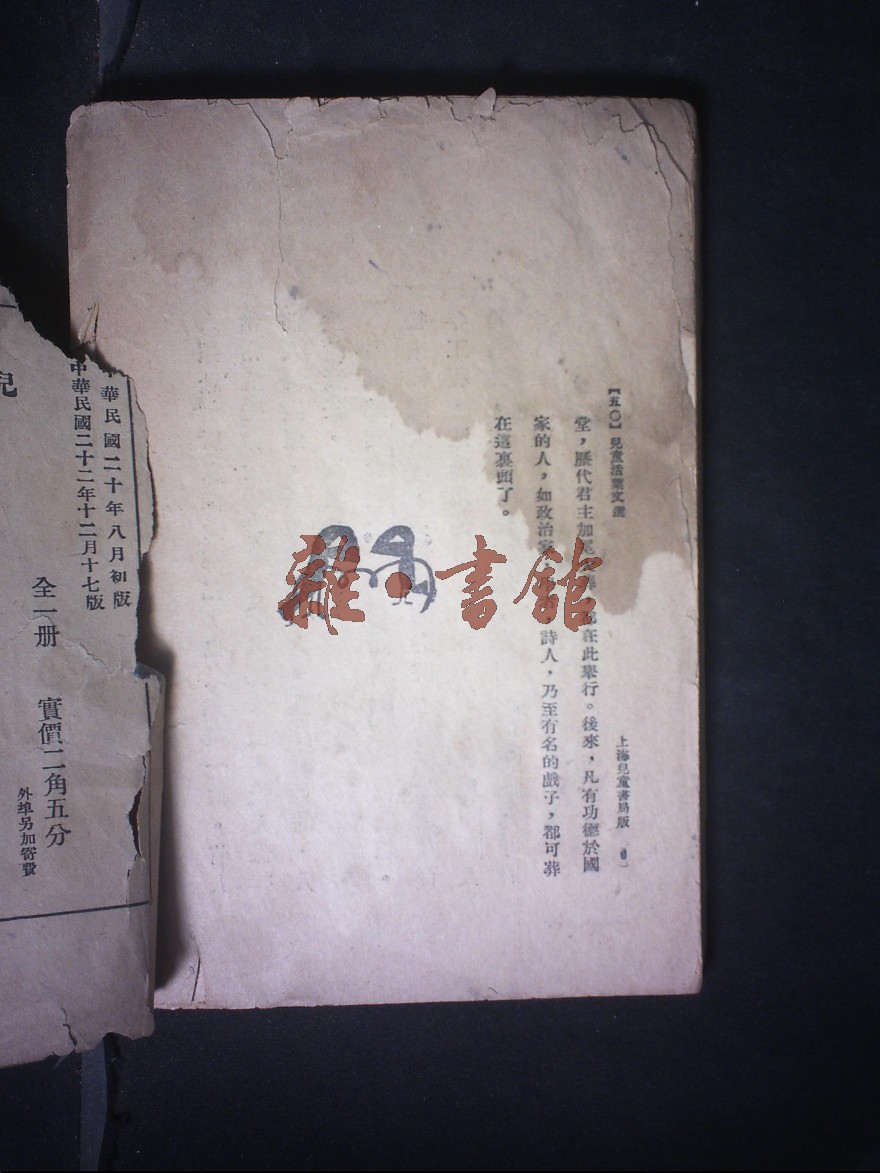 【五〇】兒童活葉文選
上海兒童書局版
堂，歷代君主加 在此舉行。後來，凡有功德於國
家的人，如政治家 詩人，乃至有名的戲子，都可葬
在這裏頭了。
雜·書館
華民國二十年八月初版
中華民國二十二年十二月十七版
全一册 實價二角五分
外埠另加寄費
兒